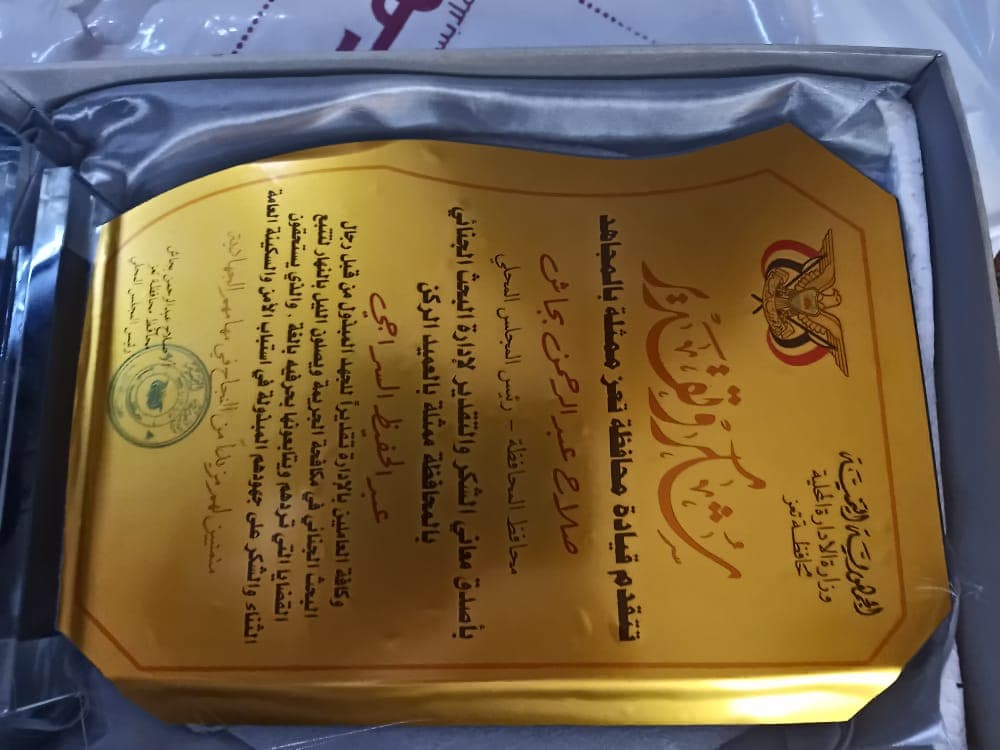 الجمهورية اليمنية
وزارة الادارة المحلية
محافظة تعز
شكر وتقدير
تتقدم قيادة محافظة تعز ممثلة بالمجاهد
صلاح عبدالرحمن بجاش
محافظ المحافظة - رئيس المجلس المحلي
بأصدق معاني الشكر والتقدير لإدارة البحث الجنائي
بالمحافظة ممثلة بالعميد الركن
عبدالحفيظ السراجي
وكافة العاملين بالإدارة تقديراً للجهد المبذول من قبل رجال
البحث الجنائي في مكافحة الجريمة ويصلون الليل بالنهار لتتبع
القضايا التي تردهم ويتابعونها بحرفيه بالغة ، والذي يستحقون
الثناء والشكر على جهودهم المبذولة في استباب الأمن والسكينة العامة
متمنيين لهم مزيداً من النجاح في مهامهم
صلاح عبدالرحمن بجاش
محافظ محافظة تعز
رئيس المجلس المحلي